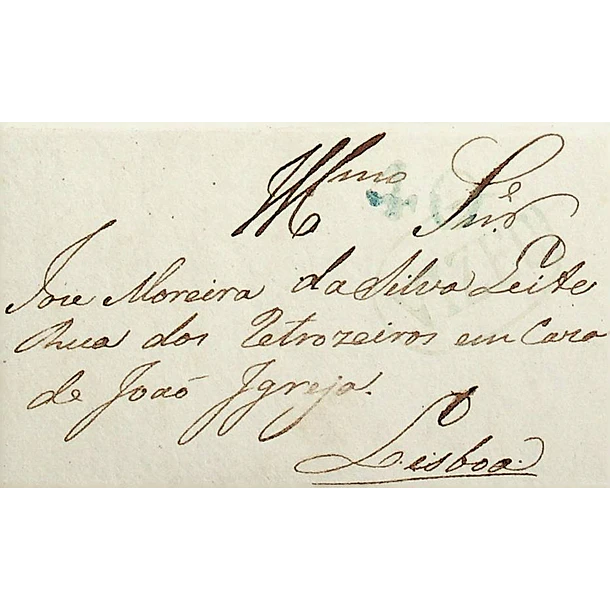 Illmo Snr
Jose Moreira da Silva Leite
Rua dos Retrozeiros em Caza
de João Igreja.
Lisboa